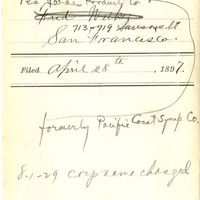 Tea Garden Products Co.
Fred Weihe
713-719 Sansome St
San Francisco.
Filed April 28th, 1897.
formerly Pacific Coast Syrup Co.
8-1-29 corp name changed